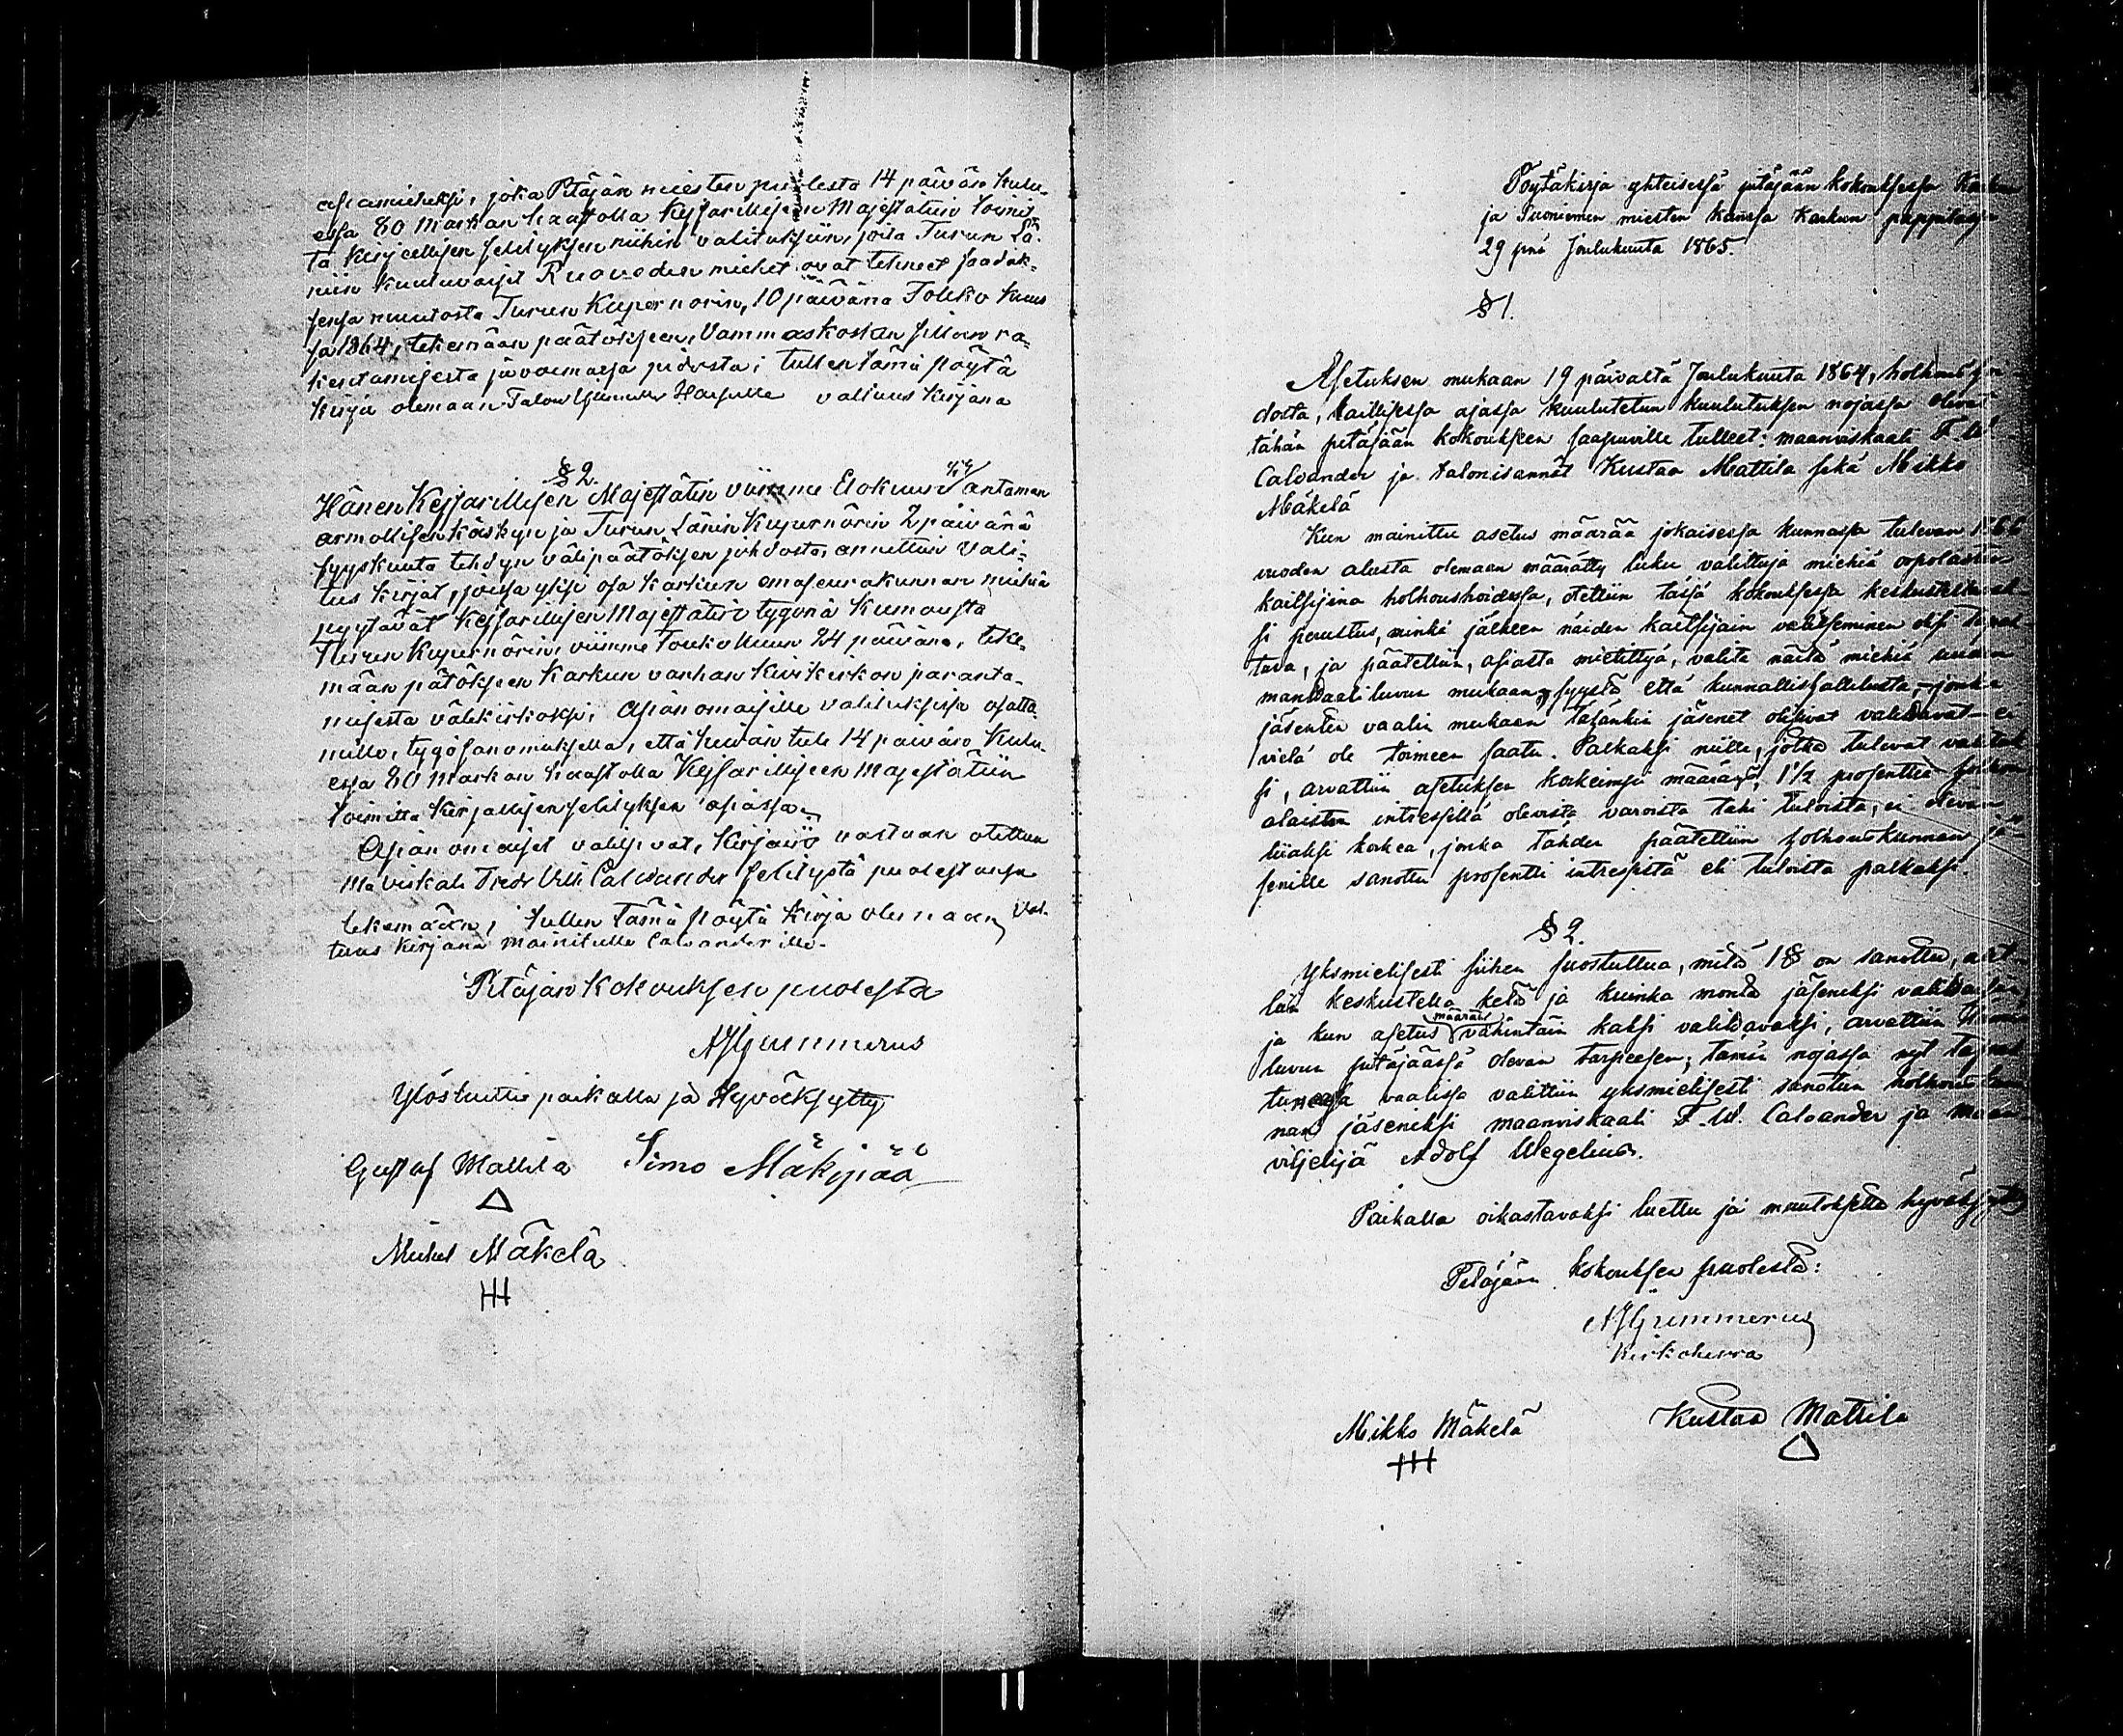 asiamieheksi, joka Pitäjän miesten puolesta 14 päivän kulu-
essa 80 Markan haastolla Keisarillisen Majestätiin toimit
ta Kirjeellisen selityksen niihin valituksiin, joita Turun Lä-
niin kuuluvaiset Ruoveden miehet ovat tehneet saadak-
sensa muutosta Turun Kupernörin, 10 päivänä Touko kuus
sa 1864, tekemään päätökseen, Vammaskosken sillan ra-
kentamisesta ja voimassa pidosta; tullen tämä pöytä
kirja olemaan Talon Harjulle valtuus kirjana
§ 2.
Hänen Keisarillisen Majestätin viimme Elokuun antaman
armollisen käskyn ja Turun Länin Kupernörin 2 päivänä
syyskuuta tehdyn välipäätöksen johdosta, annettiin Vali-
tus kirjat, joissa yksi osa Karkun emäseurakunnan miehiä
pyytävät Keisarillisen Majestätin tygönä kumousta
Turun Kupernörin, viimme Toukokuun 24 päivänä, teke-
mään pätökseen Karkun vanhan kivikirkon paranta-
misesta välikirkoksi; Asian omaisille valituksissa osotta
mille, tygösanomuksella, että heidän tule 14 päivän kulu-
essa 80 Markan haastolla Keisarilliseen Majestätiin
toimitta kirjallisen selityksen asiassa.
Asian omaiset valitsivat, kirjain vastaan otettua
Ma viskali Fredr Vilh Calwander selitystä puolestansa
tekemään, tullen tämä pöytä kirja olemaan Val-
tuus kirjana mainitulle Calwanderille.
Pitäjän Kokouksen puolesta
AJGummerus
Ylösluettu paikalla ja Hyväksytty
Gustaf Mattila Simo Mäkipää
Mickel Mäkelä
Pöytäkirja yhteisessä pitäjään kokouksessa Karkun
ja Suoniemen miesten kanssa Karkun pappilassa
29 pnä Joulukuuta 1865.
§ 1.
Asetuksen mukaan 19 päivältä Joulukuuta 1864, holhous
dosta, laillisessa ajassa kuulutetun kuulutuksen nojassa olivat
tähän pitäjään kokoukseen saapuville tulleet: maanviskaali F. W.
Calvander ja talonisännät Kustaa Mattila sekä Mikko
Mäkelä
Kun mainittu asetus määrää jokaisessa kunnassa tulevan 1866
vuoden alusta olemaan määrätty luku valittuja miehiä
kaitsijina holhoushoidossa, otettiin tässä kokouksessa
si perustus, minkä jälkeen näiden kaitsijain valitseminen olisi
tava, ja päätettiin, asiasta mietittyä, valita näitä miehiä
mantaaliluvun mukaan, syystä että kunnallishallitusta, – jonka
jäsenten vaalin mukaan tälänkin jäsenet olisivat valittavat – ei
vielä ole toimeen saatu. Palkaksi niille, jotka tulevat
si, arvattiin asetuksen korkeimpi määrä, 1½ prosenttia
alaisten intressillä olevista varoista tahi tuloista, ei olevan
liiaksi korkea, jonka tähden päätettiin holhouskunnan jä-
senille sanottu prosentti intressistä eli tuloista palkaksi.
§ 2.
Yksmielisesti siihen suostuttua, mitä 1§ on sanottu,
tiin keskustella ketä ja kuinka monta jäseneksi
ja kun asetus määrää vähintäin kaksi valittavaksi, arvattiin
luvun pitäjäässä olevan tarpeeksen; tämän nojassa nyt
tuneessa vaalissa valittiin yksmielisesti sanotun
nan jäseniksi maanviskaali F. W. Calvander ja maan
viljelijä Adolf Wegelius.
Paikalla oikastavaksi luettu ja muutoksetta hyväksytty
Pitäjään kokouksen puolesta:
AJGummerus
Kirkoherra
Mikko Mäkelä Kustaa Mattila